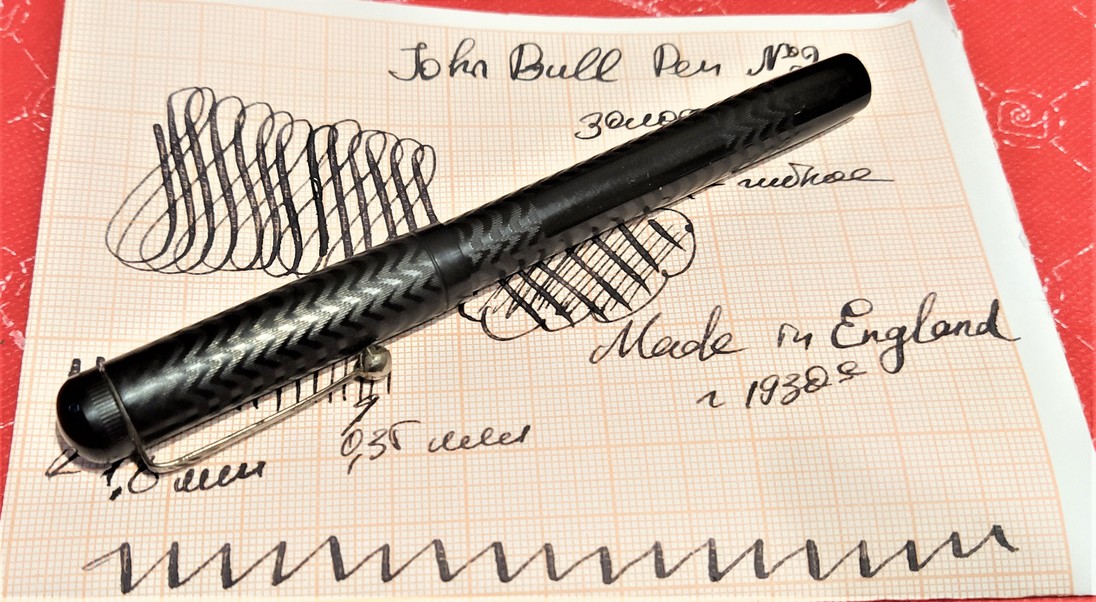 John Bull Pen №2
гибкое
Made in England
г 1930е
0,35 мм
мм